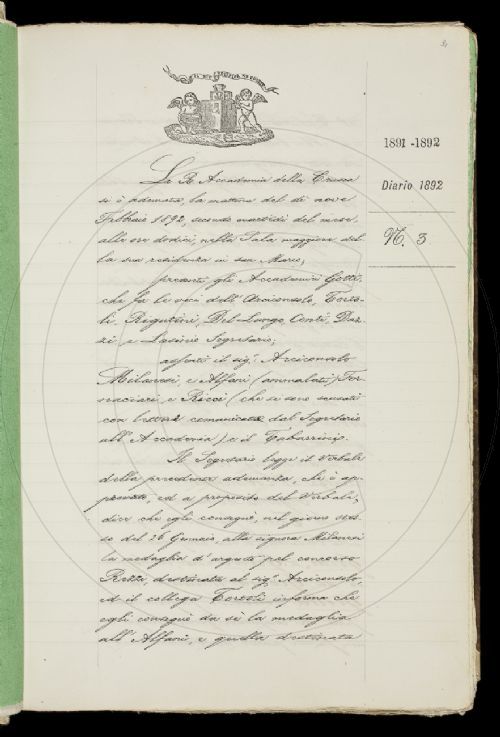 1891-1892
Diario 1892
N. 3
La R. Accademia della Crusca
si è adunata, la mattina del dì nove
Febbraio 1892, secondo martedì del mese,
alle ore dodici, nella Sala maggiore del-
la sua residenza in San Marco,
presenti gli Accademici Gotti,
che fa le veci dell'Arciconsolo, Torto-
li, Rigutini, Del Lungo, Conti, Daz-
zi, e Segretario;
assenti il sig.r Arciconsolo
Milanesi, e Alfani (ammalati), For-
naciari e Ricci (che si sono scusati
con lettera comunicata dal Segretario
all'Accademia) e il Tabarrini.
Il Segretario legge il Verbale
della precedente adunanza, che è ap-
provato, ed a proposito del Verbale,
dice che egli consegnò, nel giorno stes-
so del 26 Gennaio, alla signora Milanesi
la medaglia d'argento pel concorso
Rezzi, destinata al sig.r Arciconsolo,
ed il collega Tortoli informa che
egli consegnò da sè la medaglia
all'Alfani, e quella destinata